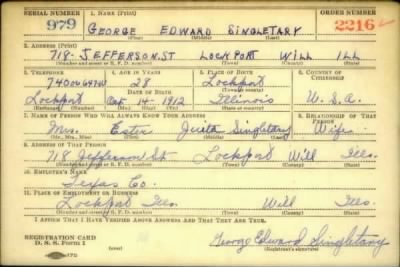 SERIAL NUMBER 1. NAME (Print) ORDER NUMBER
979 GEORGE EDWARD SINGLETARY 2216
(First) (Middle) (Last)
2. ADDRESS (Print)
718- JEFFERSON. ST LOCKPORT WILL ILL
(Number and street or R. F. D. number) (Town) (County) (State)
3. TELEPHONE 4. AGE IN YEARS 5. PLACE OF BIRTH 6. COUNTRY OF CITIZENSHIP
28 Lockport
DATE OF BIRTH
Lockport Oct 14- 1912 Illinois U. S. A.
(Exchange) (Number) (Mo.) (Day) (Yr.) (State or country)
7. NAME OF PERSON WHO WILL ALWAYS KNOW YOUR ADDRESS 8. RELATIONSHIP OF THAT PERSON
Mrs. Singletary Wife
(Mr., Mrs., Miss) (First) (Middle) (Last)
9. ADDRESS OF THAT PERSON
718 Jefferson St Lockport Will Ills.
(Number and street or R. F. D. number) (Town) (County) (State)
10. EMPLOYER'S NAME
Texas Co.
11. PLACE OF EMPLOYMENT OR BUSINESS
Lockport Ills. Will Ills.
(Number and street or R. F. D. number) (Town) (County) (State)
I AFFIRM THAT I HAVE VERIFIED ABOVE ANSWERS AND THAT THEY ARE TRUE.
REGISTRATION CARD
D. S. S. Form 1 George Edward Singletary
(Registrant's signature)